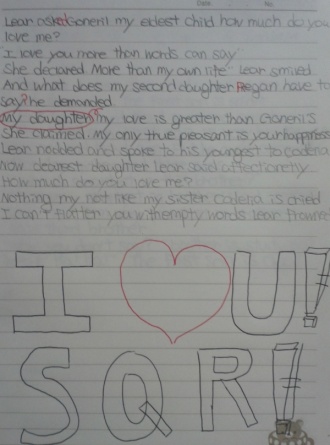 Lear asked Goneril my eldest child how much do you
love me?
I love you more than words can say
She declared More than my own life" Lear smiled
And what does my second daughter Regan have to
say? he demanded
My daughter my love is greater than Goneril's
She claimed. My only true peasant is your happiness
Lear nodded and spoke to his youngest to cadena
Now dearest daughter Lear said affectionetly
How much do you love me?
Nothing my not like my sister Cadena is cried
I can't flatter you with empty words Lear frowned
I U!
SQR!